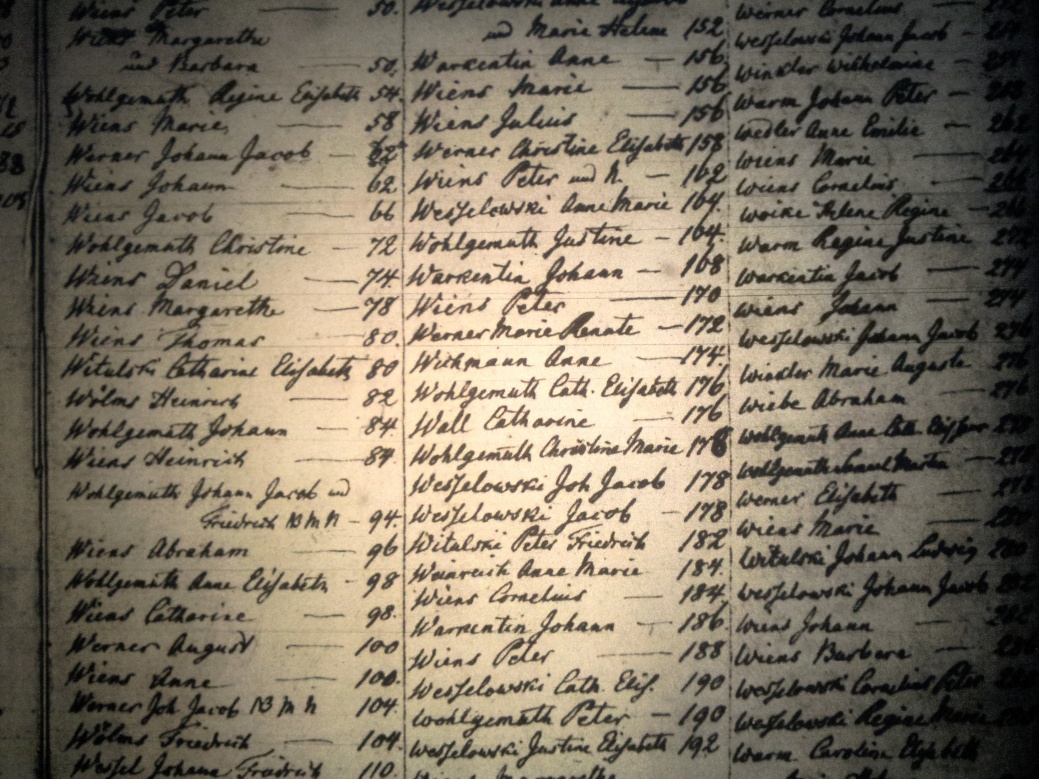 Wiens Peter 50.
Wiens Margarethe
und Barbara 50.
Wohlgemuth Regine Elisabeth 54.
Wiens Marie 58
Werner Johann Jacob 62
Wiens Johann 62.
Wiens Jacob 66
Wohlgemuth Christine 72
Wiens Daniel 74.
Wiens Margarethe 78
Wiens Thomas 80.
Witulski Catharine Elisabeth 80
Wölms Heinrich 82
Wohlgemuth Johann 84.
Wiens Heinrich 84.
Wohlgemuth Johann Jacob und
Friedrich 94.
Wiens Abraham 96
Wohlgemuth Anne Elisabeth 98
Wiens Catharine 98.
Werner August 100
Wiens Anne 100.
Werner Joh Jacob 104.
Wölms Friedrich 104.
Wessel Johann Friedrich 110.
und Marie Helene 152
Warkentin Anne 156
Wiens Marie 156
Wiens Julius 156
Werner Christine Elisabeth 158
Wiens Peter und N. 162
Wesselowski Anne Marie 164.
Wohlgemuth Justine 164.
Warkentin Johann 168
Wiens Peter 170
Werner Marie Renate 172
Wichmann Anne 174.
Wohlgemuth Cath. Elisabeth 176
Wall Catharine 176
Wohlgemuth Christine Marie 178
Wesselowski Joh Jacob 178
Wesselowski Jacob 178
Witulski Peter Friedrich 182
Weinreich Anne Marie 184.
Wiens Cornelius 184
Warkentin Johann 186
Wiens Peter 188
Wesselowski Cath. Elis. 190
Wohlgemuth Peter 190
Wesselowski Justine Elisabeth 192
Werner Cornelius
Wesselowski Johann Jacob
Winkler Wilhelmine
Warm Johann Peter
Wedler Anne Emilie
Wiens Marie
Wiens Cornelius
Woike Helene Regine
Warm Regine Justine
Warkentin Jacob 274
Wiens Johann 274
Wesselowski Johann Jacob
Winkler Marie Auguste
Wiebe Abraham
Wohlgemuth Anne Cath.
Wohlgemuth Samuel Martin
Werner Elisabeth
Wiens Marie
Witulski Johann Ludwig
Wesselowski Johann Jacob
Wiens Johann
Wiens Barbara
Wesselowski Cornelius Peter
Wesselowski Regine Marie
Warm Caroline Elisabeth